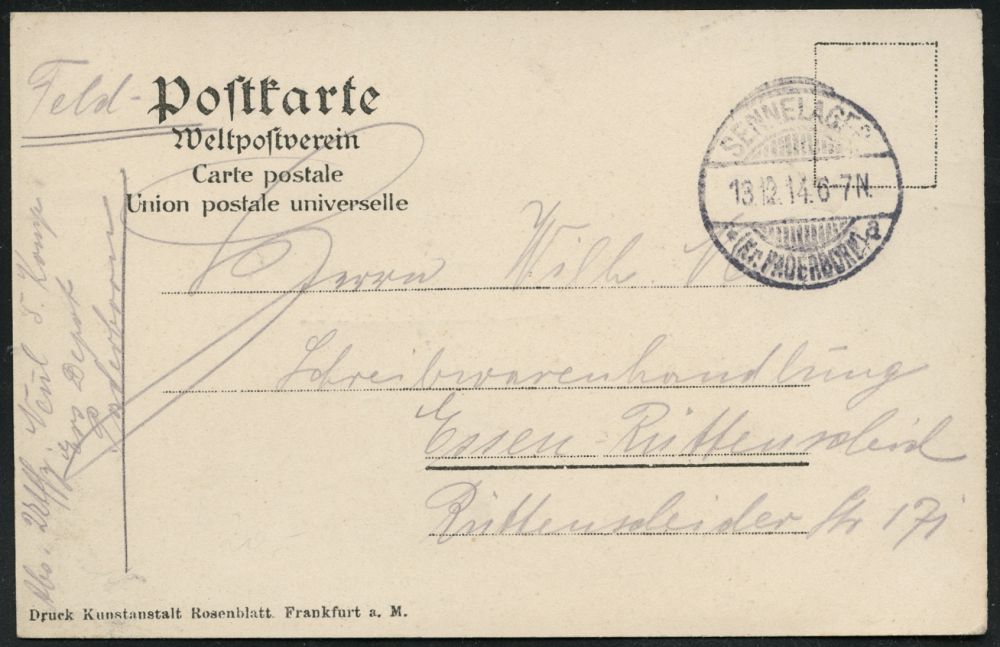 Feld-
Postkarte
Weltpostverein
Carte postale
Union postale universelle
SENNELAGER
13.12.14.6-7N.
(Kr. PADERBORN) a
Herrn Wilh.
Schreibwarenhandlung
Essen-Rüttenscheid
Rüttenscheider Str 171
Abs.
Depot
Paderborn
Druck Kunstanstalt Rosenblatt. Frankfurt a. M.